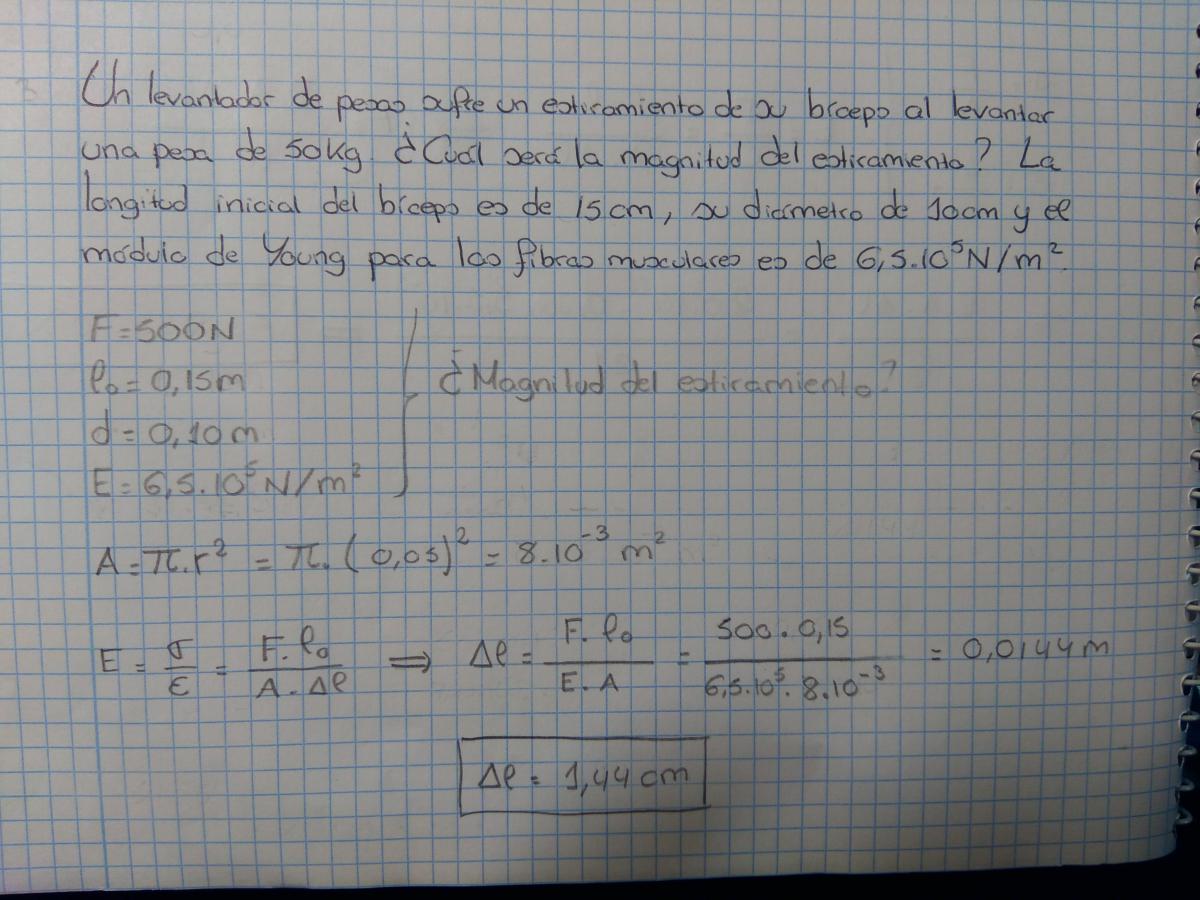 Un levantador de pesas sufre un estiramiento de su bíceps al levantar
una pesa de 50Kg ¿Cuál será la magnitud del estiramiento? La
longitud inicial del bíceps es de 15cm, su diámetro de 10cm y el
módulo de Young para las fibras musculares es de 6,5.10⁵N/m².
F=500N
l₀=0,15m
d=0,10m
E=6,5.10⁵N/m²
¿Magnitud del estiramiento?
A=π.r² = π.(0,05)² = 8.10⁻³ m²
E = σ/ε = F.l₀/A.Δl ⇒ Δl = F.l₀/E.A = 500.0,15/6,5.10⁵.8.10⁻³ = 0,0144m
Δl = 1,44cm